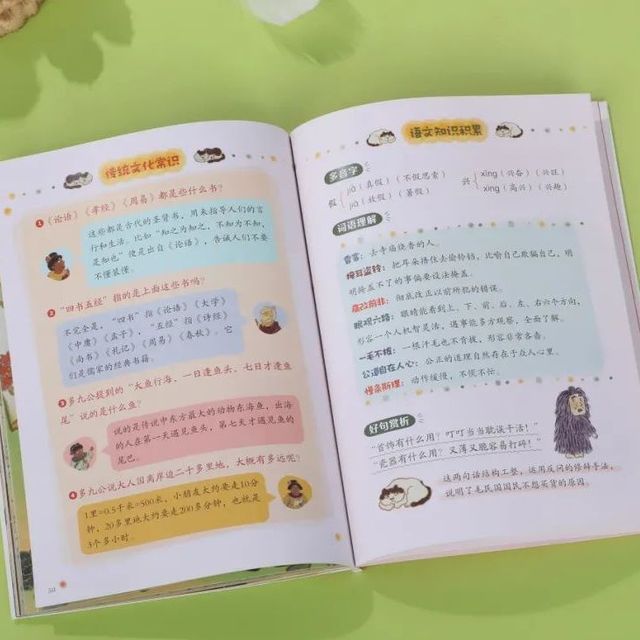 传统文化常识
1 《论语》《孝经》《周易》都是些什么书？
这些都是古代的圣贤书，用来指导人们的言
行和生活。比如“知之为知之，不知为不知，
是知也”便是出自《论语》，告诫人们不要
不懂装懂。
2 “四书五经”指的是上面这些书吗？
不完全是，“四书”指《论语》《大学》
《中庸》《孟子》，“五经”指《诗经》
《尚书》《礼记》《周易》《春秋》。它
们是儒家的经典书籍。
3 多九公提到的“大鱼行海，一日逢鱼头，七日才逢鱼
尾”说的是什么鱼？
说的是传说中东方最大的动物东海鱼，出海
的人在第一天遇见鱼头，第七天才遇见鱼的
尾巴。
4 多九公说大人国离岸边二十多里地，大概有多远呢？
1里=0.5千米=500米，小朋友大约要走10分
钟，20多里地大约要走200多分钟，也就是
3个多小时。
50
语文知识积累
多音字
假 jiǎ（真假）（不假思索）
jià（放假）（暑假）
兴 xīng（兴奋）（兴旺）
xìng（高兴）（兴趣）
词语理解
香客：去寺庙烧香的人。
掩耳盗铃：把耳朵捂住去偷铃铛，比喻自己欺骗自己，明
明掩盖不了的事偏要设法掩盖。
痛改前非：彻底改正以前所犯的错误。
眼观六路：眼睛能看到上、下、前、后、左、右六个方向，
形容一个人机智灵活，遇事能多方观察，全面了解。
一毛不拔：一根汗毛也不肯拔，形容非常吝啬。
公道自在人心：公正的道理自然存在于众人心里。
慢条斯理：动作缓慢，不慌不忙。
好句赏析
“首饰有什么用？叮叮当当耽误干活！”
“瓷器有什么用？又薄又脆容易打碎！”
这两句话结构工整，运用反问的修辞手法，
说明了毛民国国民不想买货的原因。